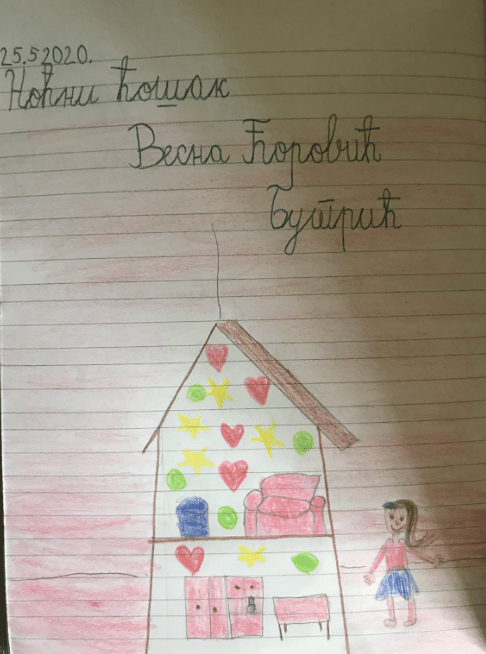 25.5 2020.
Ноћни ћошак
Весна Ћоровић
Бутрић